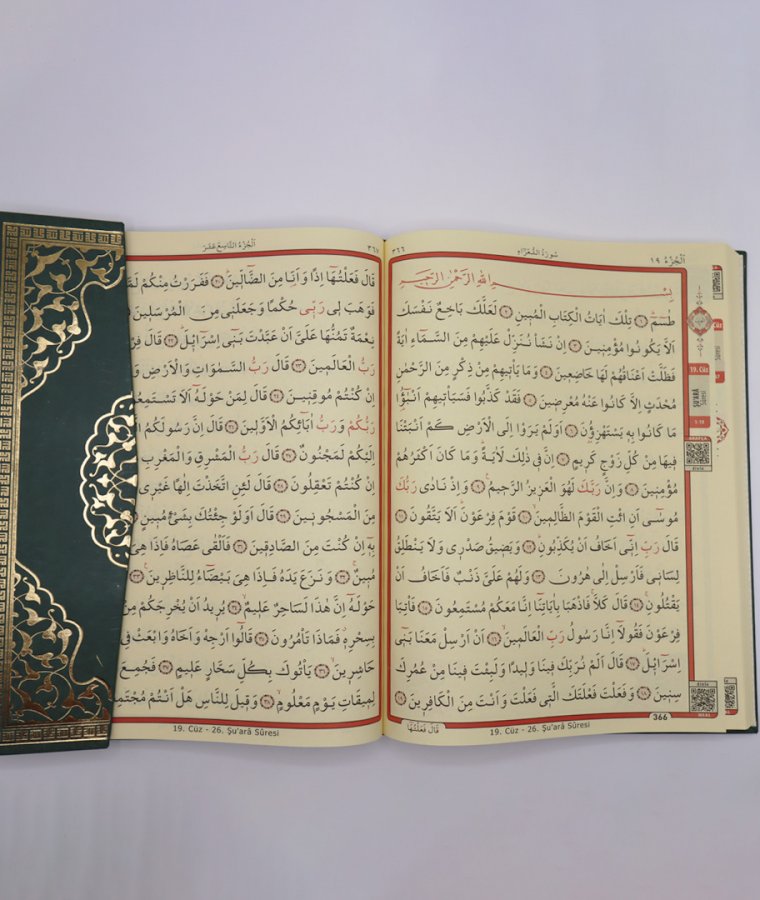 اَلْجُزْءُ ١٩
سُورَةُ الشُّعَرَٓاءِ
٣٦٦
بِسْمِ اللّٰهِ الرَّحْمٰنِ الرَّح۪يمِ
طٰسٓمٓ ﴿١﴾ تِلْكَ اٰيَاتُ الْكِتَابِ الْمُب۪ينِ ﴿٢﴾ لَعَلَّكَ بَاخِعٌ نَفْسَكَ
اَلَّا يَكُونُوا مُؤْمِن۪ينَ ﴿٣﴾ اِنْ نَشَأْ نُنَزِّلْ عَلَيْهِمْ مِنَ السَّمَٓاءِ اٰيَةً
فَظَلَّتْ اَعْنَاقُهُمْ لَهَا خَاضِع۪ينَ ﴿٤﴾ وَمَا يَأْت۪يهِمْ مِنْ ذِكْرٍ مِنَ الرَّحْمٰنِ
مُحْدَثٍ اِلَّا كَانُوا عَنْهُ مُعْرِض۪ينَ ﴿٥﴾ فَقَدْ كَذَّبُوا فَسَيَأْت۪يهِمْ اَنْبٰٓؤُ۬ا
مَا كَانُوا بِه۪ يَسْتَهْزِؤُ۫نَ ﴿٦﴾ اَوَلَمْ يَرَوْا اِلَى الْاَرْضِ كَمْ اَنْبَتْنَا
ف۪يهَا مِنْ كُلِّ زَوْجٍ كَر۪يمٍ ﴿٧﴾ اِنَّ ف۪ي ذٰلِكَ لَاٰيَةً وَمَا كَانَ اَكْثَرُهُمْ
مُؤْمِن۪ينَ ﴿٨﴾ وَاِنَّ رَبَّكَ لَهُوَ الْعَز۪يزُ الرَّح۪يمُ ﴿٩﴾ وَاِذْ نَادٰى رَبُّكَ
مُوسٰٓى اَنِ ائْتِ الْقَوْمَ الظَّالِم۪ينَ ﴿١٠﴾ قَوْمَ فِرْعَوْنَ اَلَا يَتَّقُونَ ﴿١١﴾
قَالَ رَبِّ اِنّ۪ٓي اَخَافُ اَنْ يُكَذِّبُونِ ﴿١٢﴾ وَيَض۪يقُ صَدْر۪ي وَلَا يَنْطَلِقُ
لِسَان۪ي فَاَرْسِلْ اِلٰى هٰرُونَ ﴿١٣﴾ وَلَهُمْ عَلَيَّ ذَنْبٌ فَاَخَافُ اَنْ
يَقْتُلُونِ ﴿١٤﴾ قَالَ كَلَّا فَاذْهَبَا بِاٰيَاتِنَٓا اِنَّا مَعَكُمْ مُسْتَمِعُونَ ﴿١٥﴾ فَأْتِيَا
فِرْعَوْنَ فَقُولَٓا اِنَّا رَسُولُ رَبِّ الْعَالَم۪ينَ ﴿١٦﴾ اَنْ اَرْسِلْ مَعَنَا بَن۪ٓي
اِسْرَٓائ۪لَ ﴿١٧﴾ قَالَ اَلَمْ نُرَبِّكَ ف۪ينَا وَل۪يدًا وَلَبِثْتَ ف۪ينَا مِنْ عُمُرِكَ
سِن۪ينَ ﴿١٨﴾ وَفَعَلْتَ فَعْلَتَكَ الَّت۪ي فَعَلْتَ وَاَنْتَ مِنَ الْكَافِر۪ينَ ﴿١٩﴾
366
قَالَ فَعَلْتُهَا
19. Cüz - 26. Şu'arâ Sûresi
19. Cüz
ŞU'ARÂ
Sûresi
٣٦٧
اَلْجُزْءُ التَّاسِعَ عَشَرَ
قَالَ فَعَلْتُهَٓا اِذًا وَاَنَا مِنَ الضَّٓالّ۪ينَ ﴿٢٠﴾ فَفَرَرْتُ مِنْكُمْ
فَوَهَبَ ل۪ي رَبّ۪ي حُكْمًا وَجَعَلَن۪ي مِنَ الْمُرْسَل۪ينَ
نِعْمَةٌ تَمُنُّهَا عَلَيَّ اَنْ عَبَّدْتَ بَن۪ٓي اِسْرَٓائ۪لَ ﴿٢٢﴾ قَالَ
رَبُّ الْعَالَم۪ينَ ﴿٢٣﴾ قَالَ رَبُّ السَّمٰوَاتِ وَالْاَرْضِ
اِنْ كُنْتُمْ مُوقِن۪ينَ ﴿٢٤﴾ قَالَ لِمَنْ حَوْلَهُٓ اَلَا
رَبُّكُمْ وَرَبُّ اٰبَٓائِكُمُ الْاَوَّل۪ينَ ﴿٢٦﴾ قَالَ اِنَّ رَسُولَكُمُ
اِلَيْكُمْ لَمَجْنُونٌ ﴿٢٧﴾ قَالَ رَبُّ الْمَشْرِقِ وَالْمَغْرِبِ
اِنْ كُنْتُمْ تَعْقِلُونَ ﴿٢٨﴾ قَالَ لَئِنِ اتَّخَذْتَ اِلٰهًا غَيْر۪ي
مِنَ الْمَسْجُون۪ينَ ﴿٢٩﴾ قَالَ اَوَلَوْ جِئْتُكَ بِشَيْءٍ مُب۪ينٍ
بِه۪ٓ اِنْ كُنْتَ مِنَ الصَّادِق۪ينَ ﴿٣١﴾ فَاَلْقٰى عَصَاهُ فَاِذَا هِيَ
مُب۪ينٌ ﴿٣٢﴾ وَنَزَعَ يَدَهُ فَاِذَا هِيَ بَيْضَٓاءُ لِلنَّاظِر۪ينَ ﴿٣٣﴾
حَوْلَهُٓ اِنَّ هٰذَا لَسَاحِرٌ عَل۪يمٌ ﴿٣٤﴾ يُر۪يدُ اَنْ يُخْرِجَكُمْ مِنْ
بِسِحْرِه۪ فَمَاذَا تَأْمُرُونَ ﴿٣٥﴾ قَالُٓوا اَرْجِهْ وَاَخَاهُ وَابْعَثْ فِي
حَاشِر۪ينَ ﴿٣٦﴾ يَأْتُوكَ بِكُلِّ سَحَّارٍ عَل۪يمٍ ﴿٣٧﴾ فَجُمِعَ
لِم۪يقَاتِ يَوْمٍ مَعْلُومٍ ﴿٣٨﴾ وَق۪يلَ لِلنَّاسِ هَلْ اَنْتُمْ
19. Cüz - 26. Şu'arâ Sûresi